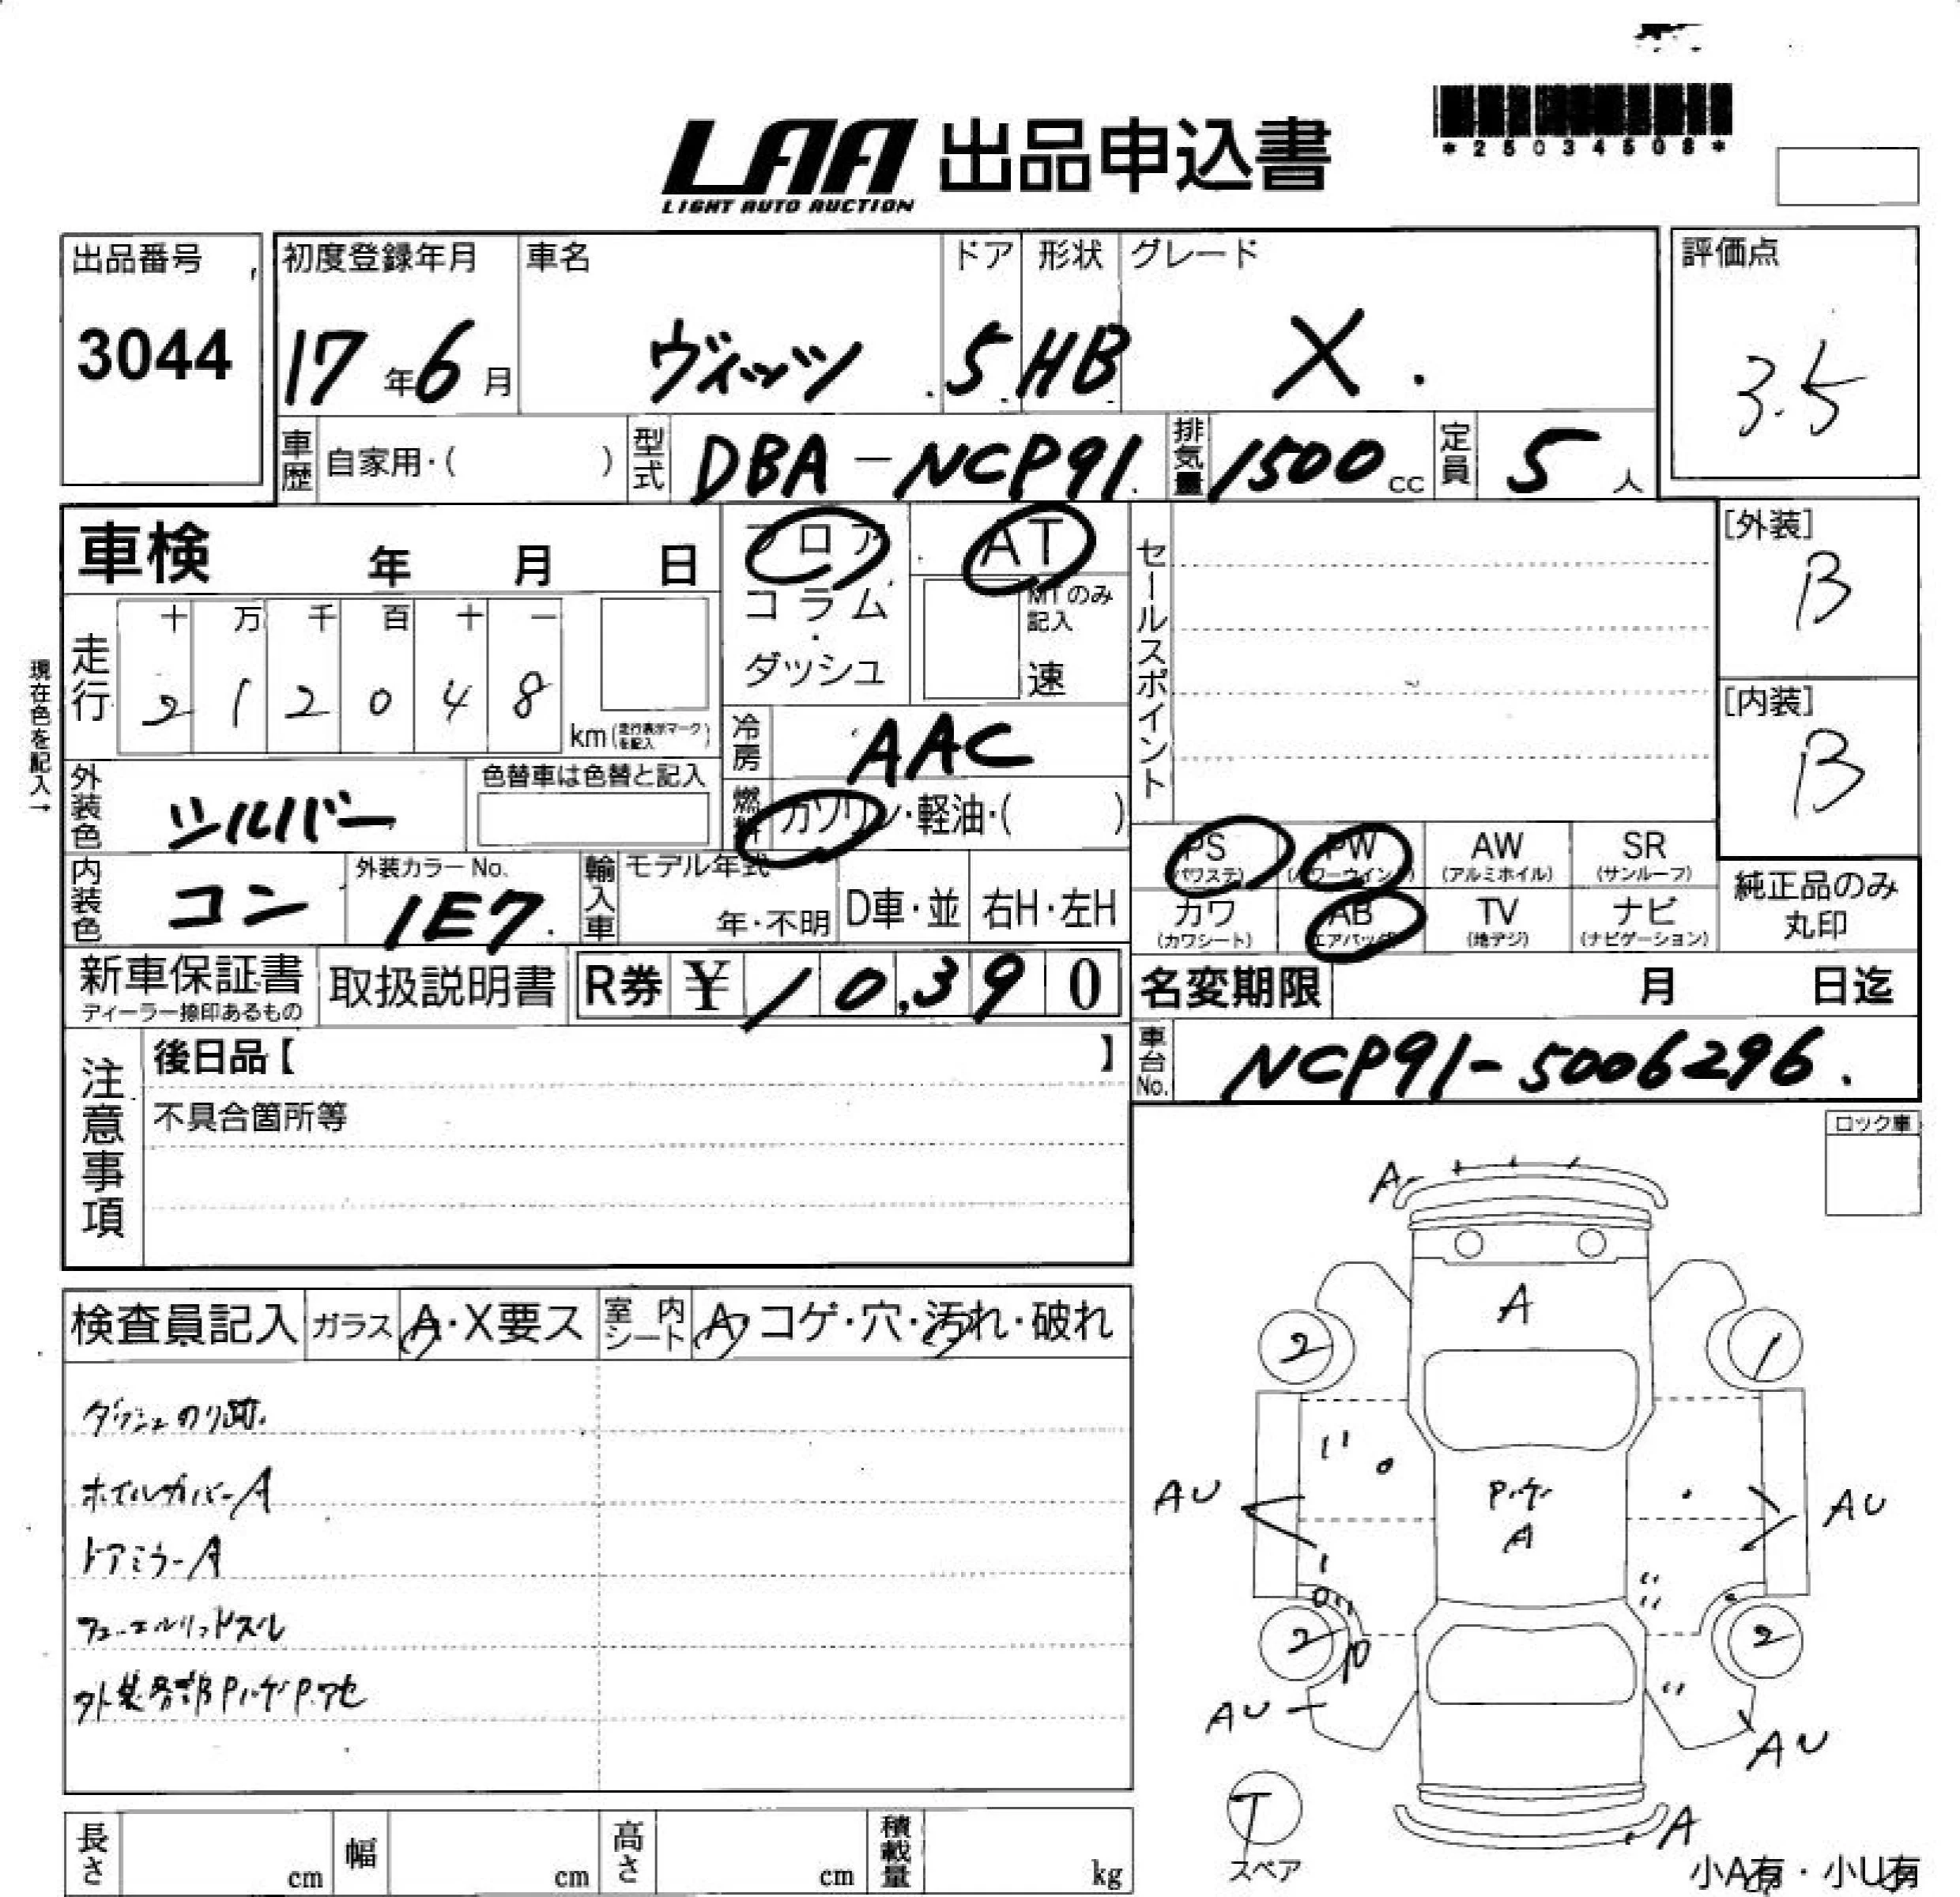 *25034508*
LAA 出品申込書
LIGHT AUTO AUCTION
出品番号
3044
初度登録年月
17年6月
車名
ヴィッツ
ドア
5
形状
HB
グレード
X
評価点
3.5
車歴 自家用・( )
型式 DBA-NCP91
排気量 1500cc
定員 5人
車検 年 月 日
フロア
コラム
・
ダッシュ
AT
MTのみ
記入
速
セールスポイント
[外装]
B
[内装]
B
現在色を記入→
走行
十 万 千 百 十 一
2 1 2 0 4 8
km(走行表示マークを記入)
冷房 AAC
外装色 シルバー
色替車は色替と記入
燃料 ガソリン・軽油・( )
内装色 コン
外装カラーNo.
1E7
輸入車
モデル年式
年・不明
D車・並
右H・左H
PS
(パワステ)
PW
(パワーウインド)
AW
(アルミホイル)
SR
(サンルーフ)
カワ
(カワシート)
AB
(エアバッグ)
TV
(地デジ)
ナビ
(ナビゲーション)
純正品のみ
丸印
新車保証書
ディーラー捺印あるもの
取扱説明書
R券 ¥ 10,390
名変期限 月 日迄
車台No. NCP91-5006296
注意事項
後日品【 】
不具合箇所等
ロック車
検査員記入
ガラス A・X要ス
室内シート A・コゲ・穴・汚れ・破れ
ダッシュのり跡
ホイルカバーA
ドアミラーA
フューエルリッドズレ
外装各部Pハゲ P.アセ
A
A
2
1
AU
Pハゲ
A
AU
2
2
AU
AU
T
スペア
A
小A有・小U有
長さ cm
幅 cm
高さ cm
積載量 kg